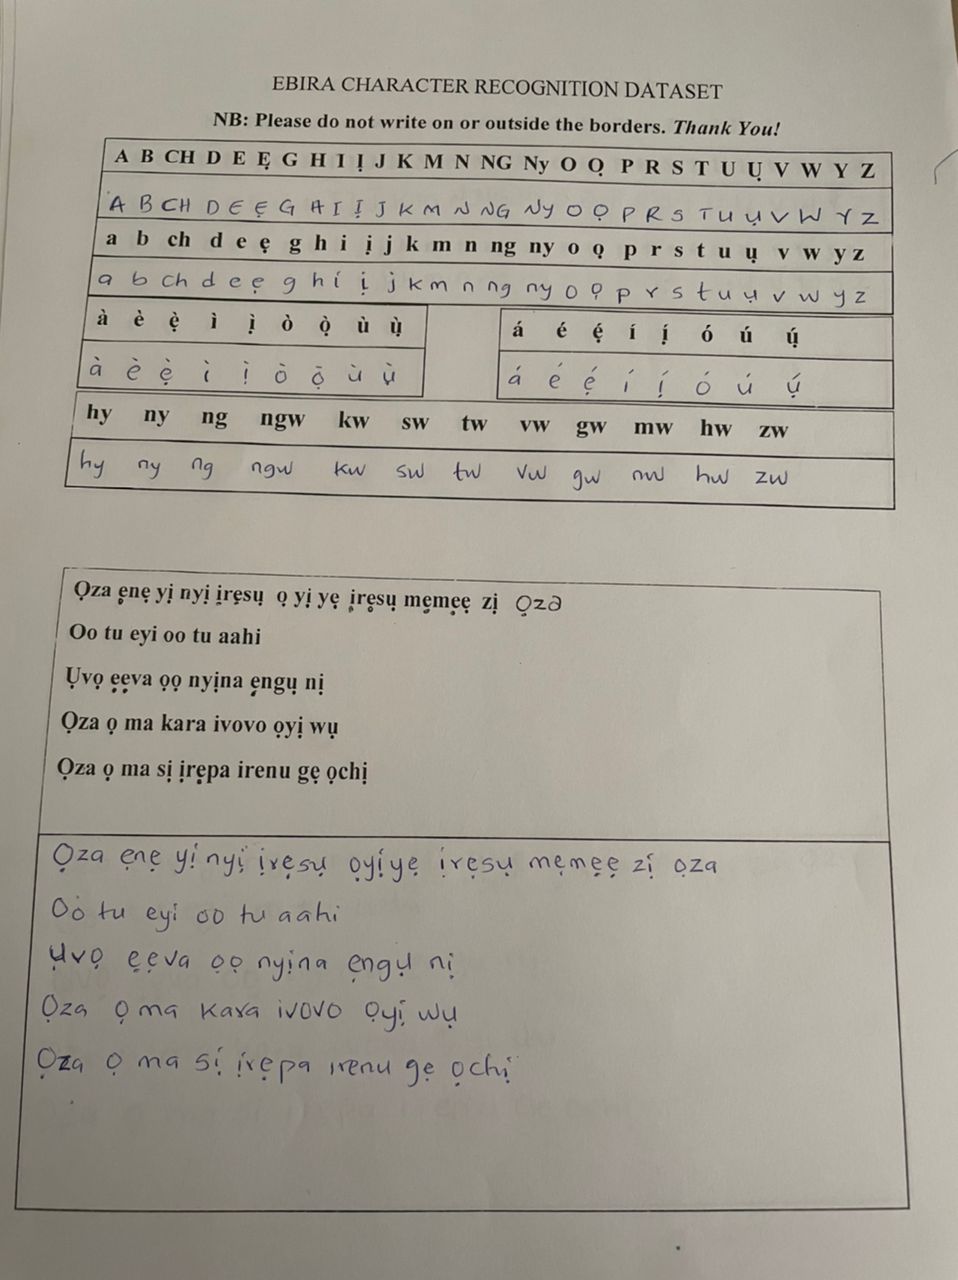 EBIRA CHARACTER RECOGNITION DATASET
NB: Please do not write on or outside the borders. Thank You!
A B CH D E Ẹ G H I Ị J K M N NG Ny O Ọ P R S T U Ụ V W Y Z
A B CH D E Ẹ G H I Ị J K M N NG Ny O Ọ P R S T U Ụ V W Y Z
a b ch d e ẹ g h i ị j k m n ng ny o ọ p r s t u ụ v w y z
a b ch d e ẹ g h i ị j k m n ng ny o ọ p r s t u ụ v w y z
à è ẹ̀ ì ị̀ ò ọ̀ ù ụ̀ á é ẹ́ í ị́ ó ú ụ́
à è ẹ̀ ì ị̀ ò ọ̀ ù ụ̀ á é ẹ́ í ị́ ó ú ụ́
hy ny ng ngw kw sw tw vw gw mw hw zw
hy ny ng ngw kw sw tw vw gw mw hw zw
Ọza ẹnẹ yị nyị ịrẹsụ ọ yị yẹ ịrẹsụ mẹmẹẹ zị ọza
Oo tu eyi oo tu aahi
Ụvọ ẹẹva ọọ nyịna ẹngụ nị
Ọza ọ ma kara ivovo ọyị wụ
Ọza ọ ma sị ịrẹpa irenu gẹ ọchị
Ọza ẹnẹ yị nyị ịrẹsụ ọyịyẹ ịrẹsụ mẹmẹẹ zị ọza
Oo tu eyi oo tu aahi
Ụvọ ẹẹva ọọ nyịna ẹngụ nị
Ọza ọ ma kara ivovo ọyị wụ
Ọza ọ ma sị ịrẹpa irenu gẹ ọchị